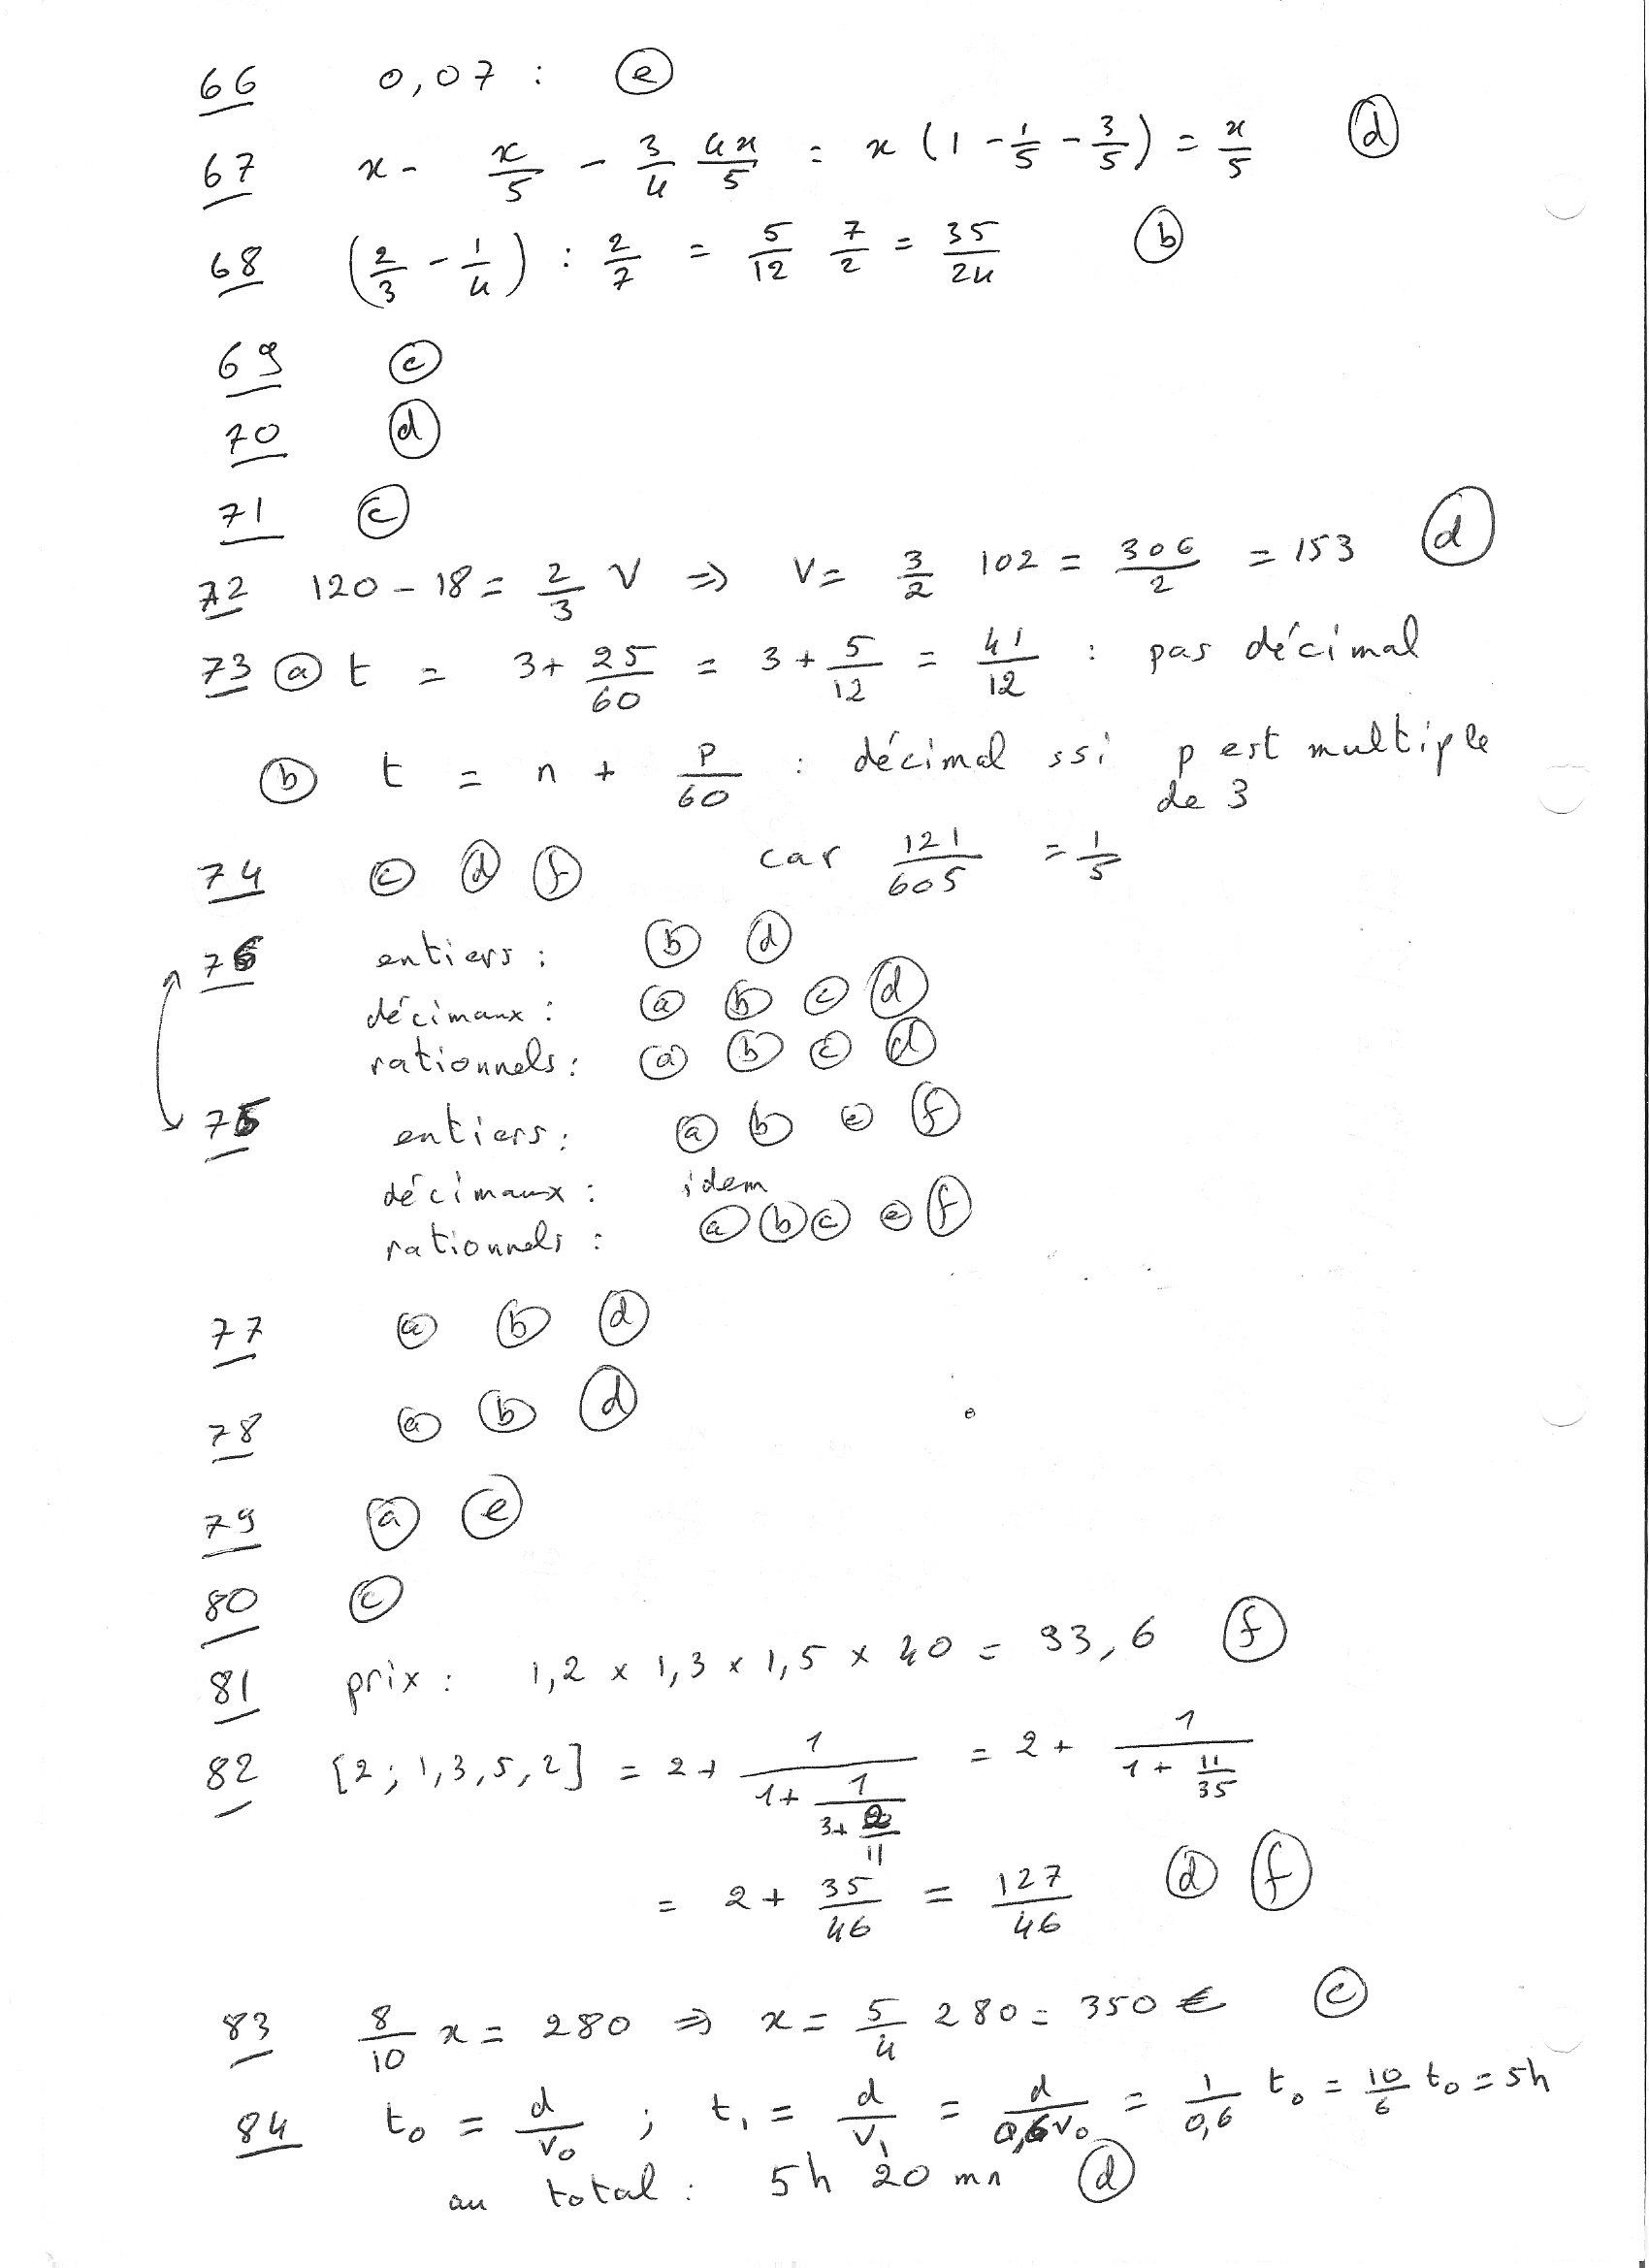 66 0,07 : (e)
67 x - x/5 - 3/4 4x/5 = x (1 - 1/5 - 3/5) = x/5 (d)
68 (2/3 - 1/4) : 2/7 = 5/12 7/2 = 35/24 (b)
69 (c)
70 (d)
71 (c)
72 120 - 18 = 2/3 V => V = 3/2 102 = 306/2 = 153 (d)
73 (a) t = 3 + 25/60 = 3 + 5/12 = 41/12 : pas décimal
(b) t = n + p/60 : décimal ssi p est multiple
de 3
74 (c) (d) (f) car 121/605 = 1/5
76 entiers : (b) (d)
décimaux : (a) (b) (c) (d)
rationnels : (a) (b) (c) (d)
75 entiers : (a) (b) (e) (f)
décimaux : idem
rationnels : (a) (b) (c) (e) (f)
77 (a) (b) (d)
78 (a) (b) (d)
79 (a) (e)
80 (c)
81 prix : 1,2 x 1,3 x 1,5 x 40 = 93,6 (f)
82 [2; 1,3,5,2] = 2 + 1/(1 + 1/(3 + 2/11)) = 2 + 1/(1 + 11/35)
= 2 + 35/46 = 127/46 (d) (f)
83 8/10 x = 280 => x = 5/4 280 = 350 € (c)
84 t₀ = d/v₀ ; t₁ = d/v₁ = d/0,6v₀ = 1/0,6 t₀ = 10/6 t₀ = 5h
au total : 5h 20 mn (d)